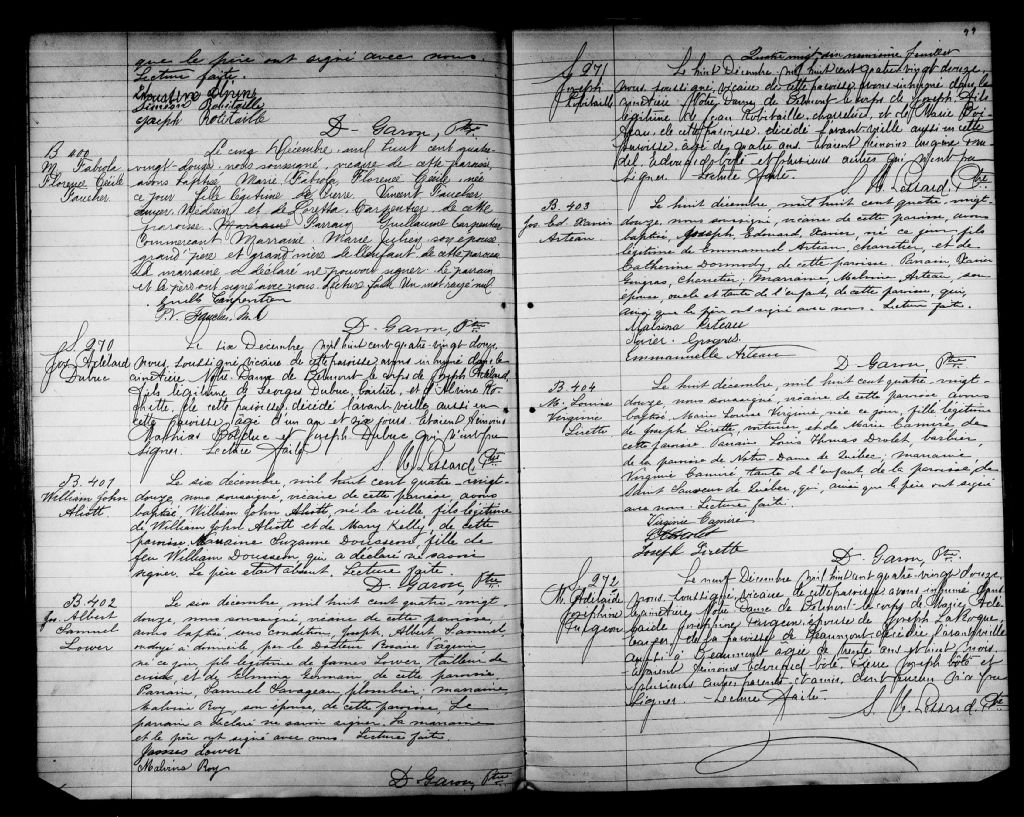 que le père ont signé avec nous.
Lecture faite.
Siméon Robitaille
Joseph Robitaille
D. Garon, Ptre
B 400
M. Fabiola
Florence Cécile
Faucher.
Le cinq Décembre, mil huit cent quatre-
vingt-douze, nous soussigné, vicaire de cette paroisse,
avons baptisé Marie Fabiola Florence Cécile, née
ce jour fille légitime de Pierre Vincent Faucher,
Médecin et de Loretta Carpentier de cette
paroisse. Parrain Guillaume Carpentier
Commerçant Marraine Marie son épouse
grand'père et grand'mère de l'enfant de cette paroisse
La marraine a déclaré ne pouvoir signer le parrain
et le père ont signé avec nous. Lecture faite. Un mot rayé nul
Guill. Carpentier
P.V. Faucher M.D.
D. Garon, Ptre
S 970
Jos. Adélard
Dubuc
Le six Décembre, mil huit cent quatre-vingt douze,
nous, soussigné, vicaire de cette paroisse avons inhumé dans le
cimetière Notre-Dame de Belmont le corps de Joseph Adélard,
fils légitime de Georges Dubuc, et d'Alvine Ro-
chette, de cette paroisse, décédé l'avant-veille aussi en
cette paroisse, âgé d'un an et six jours. Étaient témoins
Mathias et Joseph Dubuc qui n'ont pu
signer. Lecture faite.
Lessard Ptre
B. 401
William John
Aliott
Le six décembre, mil huit cent quatre-vingt-
douze, nous soussigné, vicaire de cette paroisse, avons
baptisé William John Aliott, né la veille, fils légitime
de William John Aliott et de Mary Kelly, de cette
paroisse. Marraine Suzanne Doussom, fille de
feu William Doussom, qui a déclaré ne savoir
signer. Le père était absent. Lecture faite.
D. Garon, Ptre
B. 402
Jos. Albert
Samuel
Lower
Le six décembre, mil huit cent quatre-vingt
douze, nous soussigné, vicaire de cette paroisse,
avons baptisé, sous condition, Joseph Albert Samuel
ondoyé à domicile, par le Docteur
né ce jour, fils légitime de James Lower, tailleur de
cuir, et de Emma German, de cette paroisse.
Parrain, Samuel plombier; marraine
Malvina Roy, son épouse, de cette paroisse. Le
parrain a déclaré ne savoir signer. La marraine
et le père ont signé avec nous. Lecture faite.
James Lower
Malvina Roy
D. Garon, Ptre
99
Quatre vingt dix neuvième feuillet
S. 971
Joseph
Robitaille
Le huit Décembre, mil huit cent quatre-vingt douze,
nous, soussigné, vicaire de cette paroisse, avons inhumé dans le
cimetière Notre Dame de Belmont le corps de Joseph, fils
légitime de Jean Robitaille, et de Marie
de cette paroisse, décédé l'avant-veille aussi en cette
paroisse, âgé de quatre ans. Étaient témoins
et plusieurs autres qui n'ont pu
signer. Lecture faite.
Lessard, Ptre
B. 403
Jos. Ed. Xavier
Arteau
Le huit décembre, mil huit cent quatre-vingt-
douze, nous soussigné, vicaire de cette paroisse, avons
baptisé, Joseph, Edouard, Xavier, né ce jour, fils
légitime de Emmanuel Arteau, charretier, et de
Catherine Donnody, de cette paroisse. Parrain, Xavier
Gingras, charretier; marraine, Malvina Arteau son
épouse, oncle et tante de l'enfant, de cette paroisse, qui,
ainsi que le père ont signé avec nous. Lecture faite.
Malvina Arteau
Xavier Gingras.
Emmanuelle Arteau
D. Garon, Ptre
B. 404
M. Louise
Virginie
Lirette
Le huit décembre, mil huit cent quatre-vingt-
douze, nous soussigné, vicaire de cette paroisse, avons
baptisé Marie Louise Virginie née ce jour, fille légitime
de Joseph Lirette, voiturier, et de Marie Camiré, de
cette paroisse. Parrain Louis Thomas Drolet, barbier,
de la paroisse de Notre-Dame de Québec; marraine,
Virginie Camiré tante de l'enfant de la paroisse, de
Saint Sauveur de Québec, qui, ainsi que le père ont signé
avec nous. Lecture faite.
Virginie Camire
Joseph Lirette
D. Garon, Ptre
S. 972
M. Adelaïde
Josephine
Turgeon
Le neuf Décembre mil huit cent quatre-vingt douze,
nous, soussigné, vicaire de cette paroisse avons inhumé dans
le cimetière Notre Dame de Belmont le corps de Marie Adé-
laïde Josephine Turgeon, épouse de Joseph
de la paroisse de Beaumont décédée l'avant veille
aussi à Beaumont âgée de trente ans et huit mois.
Étaient témoins Edouard Côté, Pierre Joseph Côté et
plusieurs autres parents et amis, dont
signer. Lecture faite.
Lessard Ptre